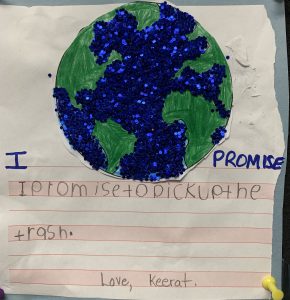 I PROMISE
I promise to pick up the
trash.
Love, Keerat.